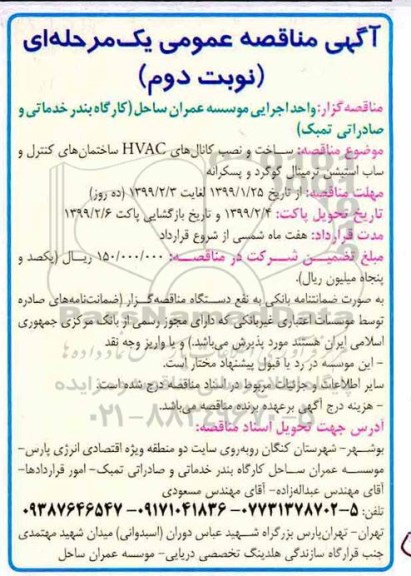 آگهی مناقصه عمومی یک‌مرحله‌ای
(نوبت دوم)
مناقصه‌گزار: واحد اجرایی موسسه عمران ساحل (کارگاه بندر خدماتی و
صادراتی تمبک)
موضوع مناقصه: ساخت و نصب کانال‌های HVAC ساختمان‌های کنترل و
ساب استیشن ترمینال گوگرد و پسکرانه
مهلت مناقصه: از تاریخ ۱۳۹۹/۱/۲۵ لغایت ۱۳۹۹/۲/۳ (ده روز)
تاریخ تحویل پاکت: ۱۳۹۹/۲/۴ و تاریخ بازگشایی پاکت ۱۳۹۹/۲/۶
مدت قرارداد: هفت ماه شمسی از شروع قرارداد
مبلغ تضمین شرکت در مناقصه: ۱۵۰/۰۰۰/۰۰۰ ریال (یکصد و
پنجاه میلیون ریال).
به صورت ضمانتنامه بانکی به نفع دستگاه مناقصه‌گزار (ضمانت‌نامه‌های صادره
توسط موسسات اعتباری غیربانکی که دارای مجوز رسمی از بانک مرکزی جمهوری
اسلامی ایران هستند مورد پذیرش می‌باشد.) و یا واریز وجه نقد
- این موسسه در رد یا قبول پیشنهاد مختار است.
سایر اطلاعات و جزئیات مربوط در اسناد مناقصه درج شده است.
- هزینه درج آگهی برعهده برنده مناقصه می‌باشد.
آدرس جهت تحویل اسناد مناقصه:
بوشهر- شهرستان کنگان روبه‌روی سایت دو منطقه ویژه اقتصادی انرژی پارس-
موسسه عمران ساحل کارگاه بندر خدماتی و صادراتی تمبک- امور قراردادها-
آقای مهندس عبداله‌زاده- آقای مهندس مسعودی
تلفن: ۵-۰۷۷۳۱۳۷۸۷۰۲- ۰۹۱۷۱۰۴۱۸۳۶- ۰۹۳۸۷۶۴۶۵۴۷
تهران- تهران‌پارس بزرگراه شهید عباس دوران (اسبدوانی) میدان شهید مهتمدی
جنب قرارگاه سازندگی هلدینگ تخصصی دریایی- موسسه عمران ساحل